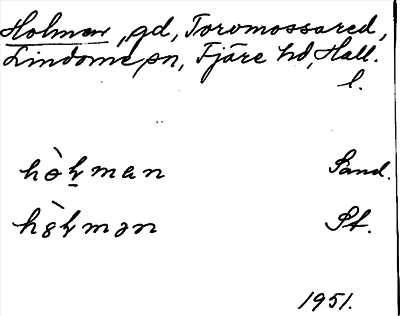 Holmen, gd, Torvmossared,
Lindome sn, Fjäre hd, Hall.
l.
hò̱ɫman Sand.
hȣ̀ɫmən St.
1951.